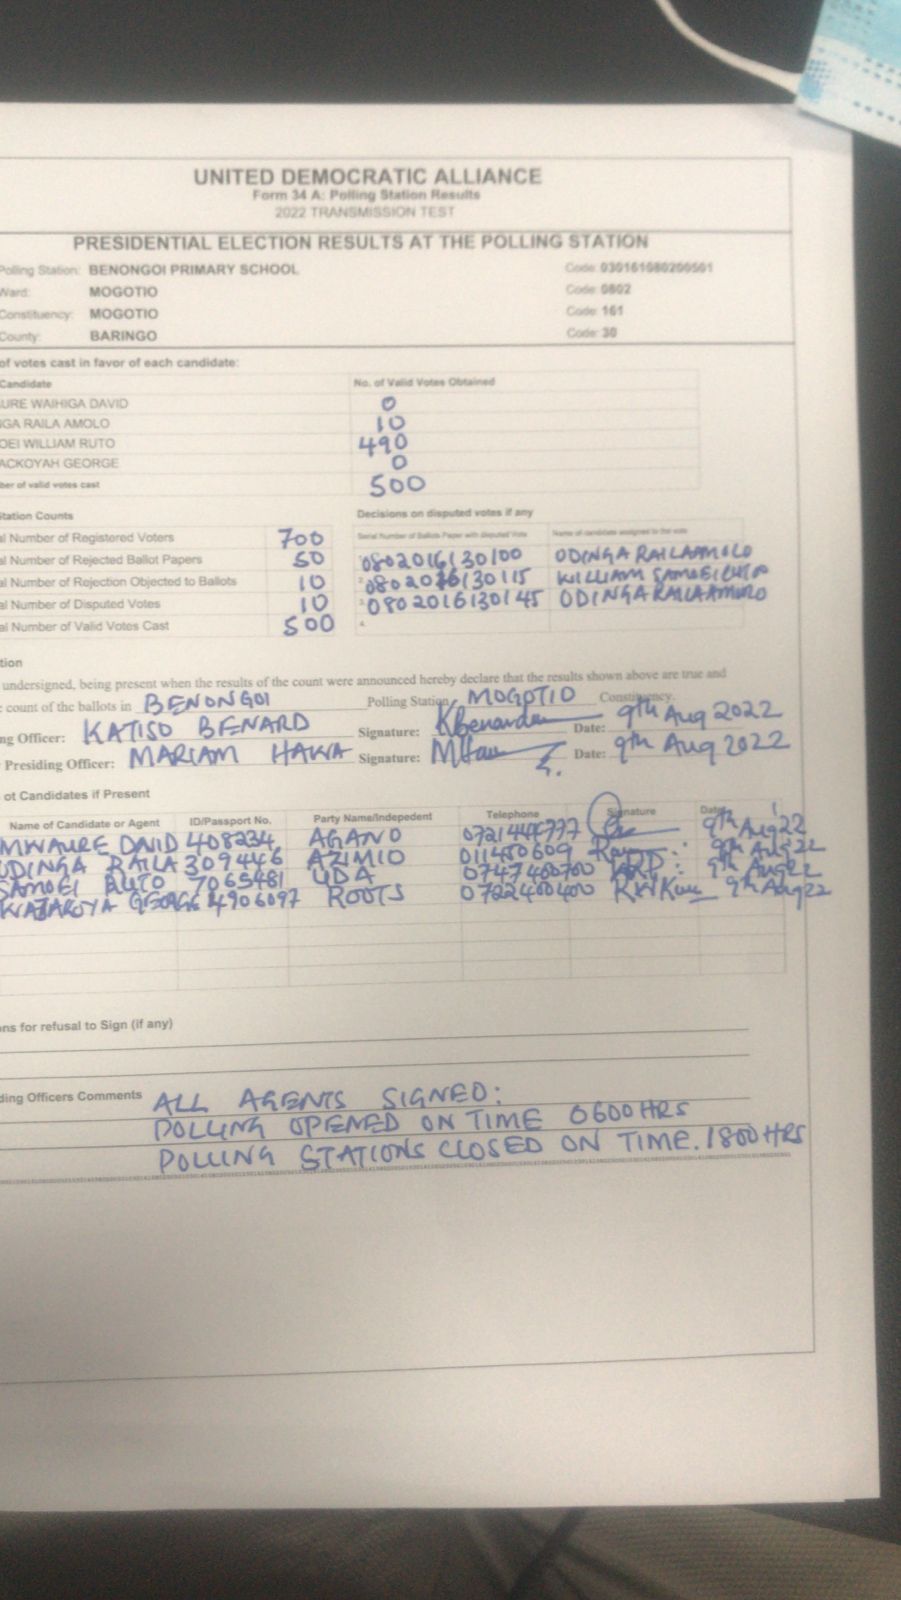 UNITED DEMOCRATIC ALLIANCE
Form 34 A: Polling Station Results
2022 TRANSMISSION TEST
PRESIDENTIAL ELECTION RESULTS AT THE POLLING STATION
Polling Station: BENONGOI PRIMARY SCHOOL Code: 030161080200501
Ward: MOGOTIO Code: 0802
Constituency: MOGOTIO Code: 161
County: BARINGO Code: 30
of votes cast in favor of each candidate:
Candidate No. of Valid Votes Obtained
URE WAIHIGA DAVID 0
GA RAILA AMOLO 10
OEI WILLIAM RUTO 490
ACKOYAH GEORGE 0
ber of valid votes cast 500
tation Counts Decisions on disputed votes if any
l Number of Registered Voters 700 Serial Number of Ballots Paper with disputed Vote Name of candidate assigned to the vote
l Number of Rejected Ballot Papers 50 0802016130100 ODINGA RAILA AMOLO
al Number of Rejection Objected to Ballots 10 2 0802016130115 WILLIAM SAMOEI RUTO
al Number of Disputed Votes 10 3 0802016130145 ODINGA RAILA AMOLO
al Number of Valid Votes Cast 500 4.
tion
undersigned, being present when the results of the count were announced hereby declare that the results shown above are true and
count of the ballots in BENONGOI Polling Station, MOGOTIO Constituency.
ng Officer: KATISO BENARD Signature: KBenard Date: 9th Aug 2022
Presiding Officer: MARIAM HAWA Signature: Date: 9th Aug 2022
ot Candidates if Present
Name of Candidate or Agent ID/Passport No. Party Name/Indepedent Telephone Signature Date
MWAURE DAVID 408234 AGANO 0721444777 9th Aug 22
ODINGA RAILA 309446 AZIMIO 011480609 9th Aug 22
SAMOEI RUTO 7065481 UDA 0747400700 9th Aug 22
WAJAKOYA GEORGE 4906097 ROOTS 0722400400 9th Aug 22
ns for refusal to Sign (if any)
ding Officers Comments ALL AGENTS SIGNED:
POLLING OPENED ON TIME 0600HRS
POLLING STATIONS CLOSED ON TIME. 1800HRS